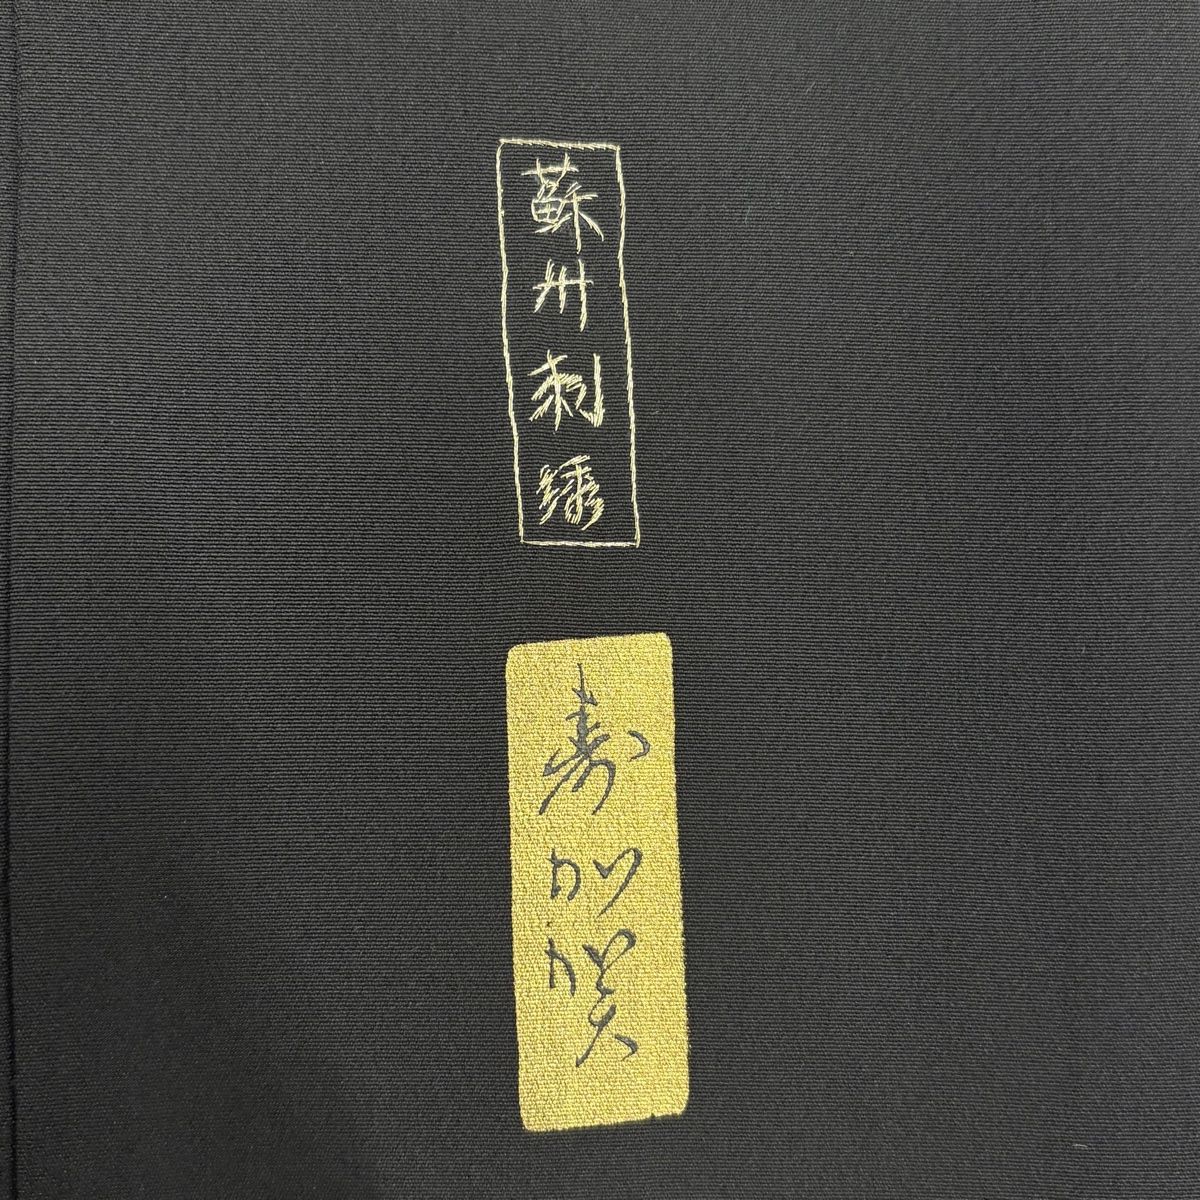 蘇州刺繍
寿加賀